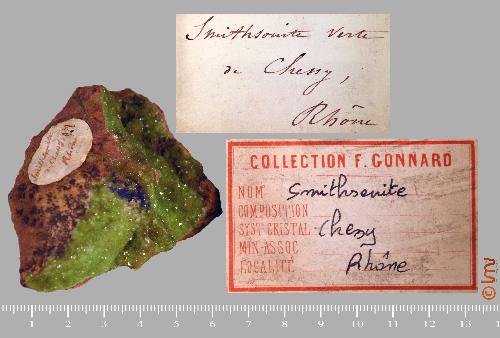 Smithsonite verte
de Chessy,
Rhône
COLLECTION F. GONNARD
NOM Smithsonite
COMPOSITION
SYST CRISTAL Chessy
MIN ASSOC
LOCALITÉ Rhône
1 2 3 4 5 6 7 8 9 10 11 12 13
© lmv